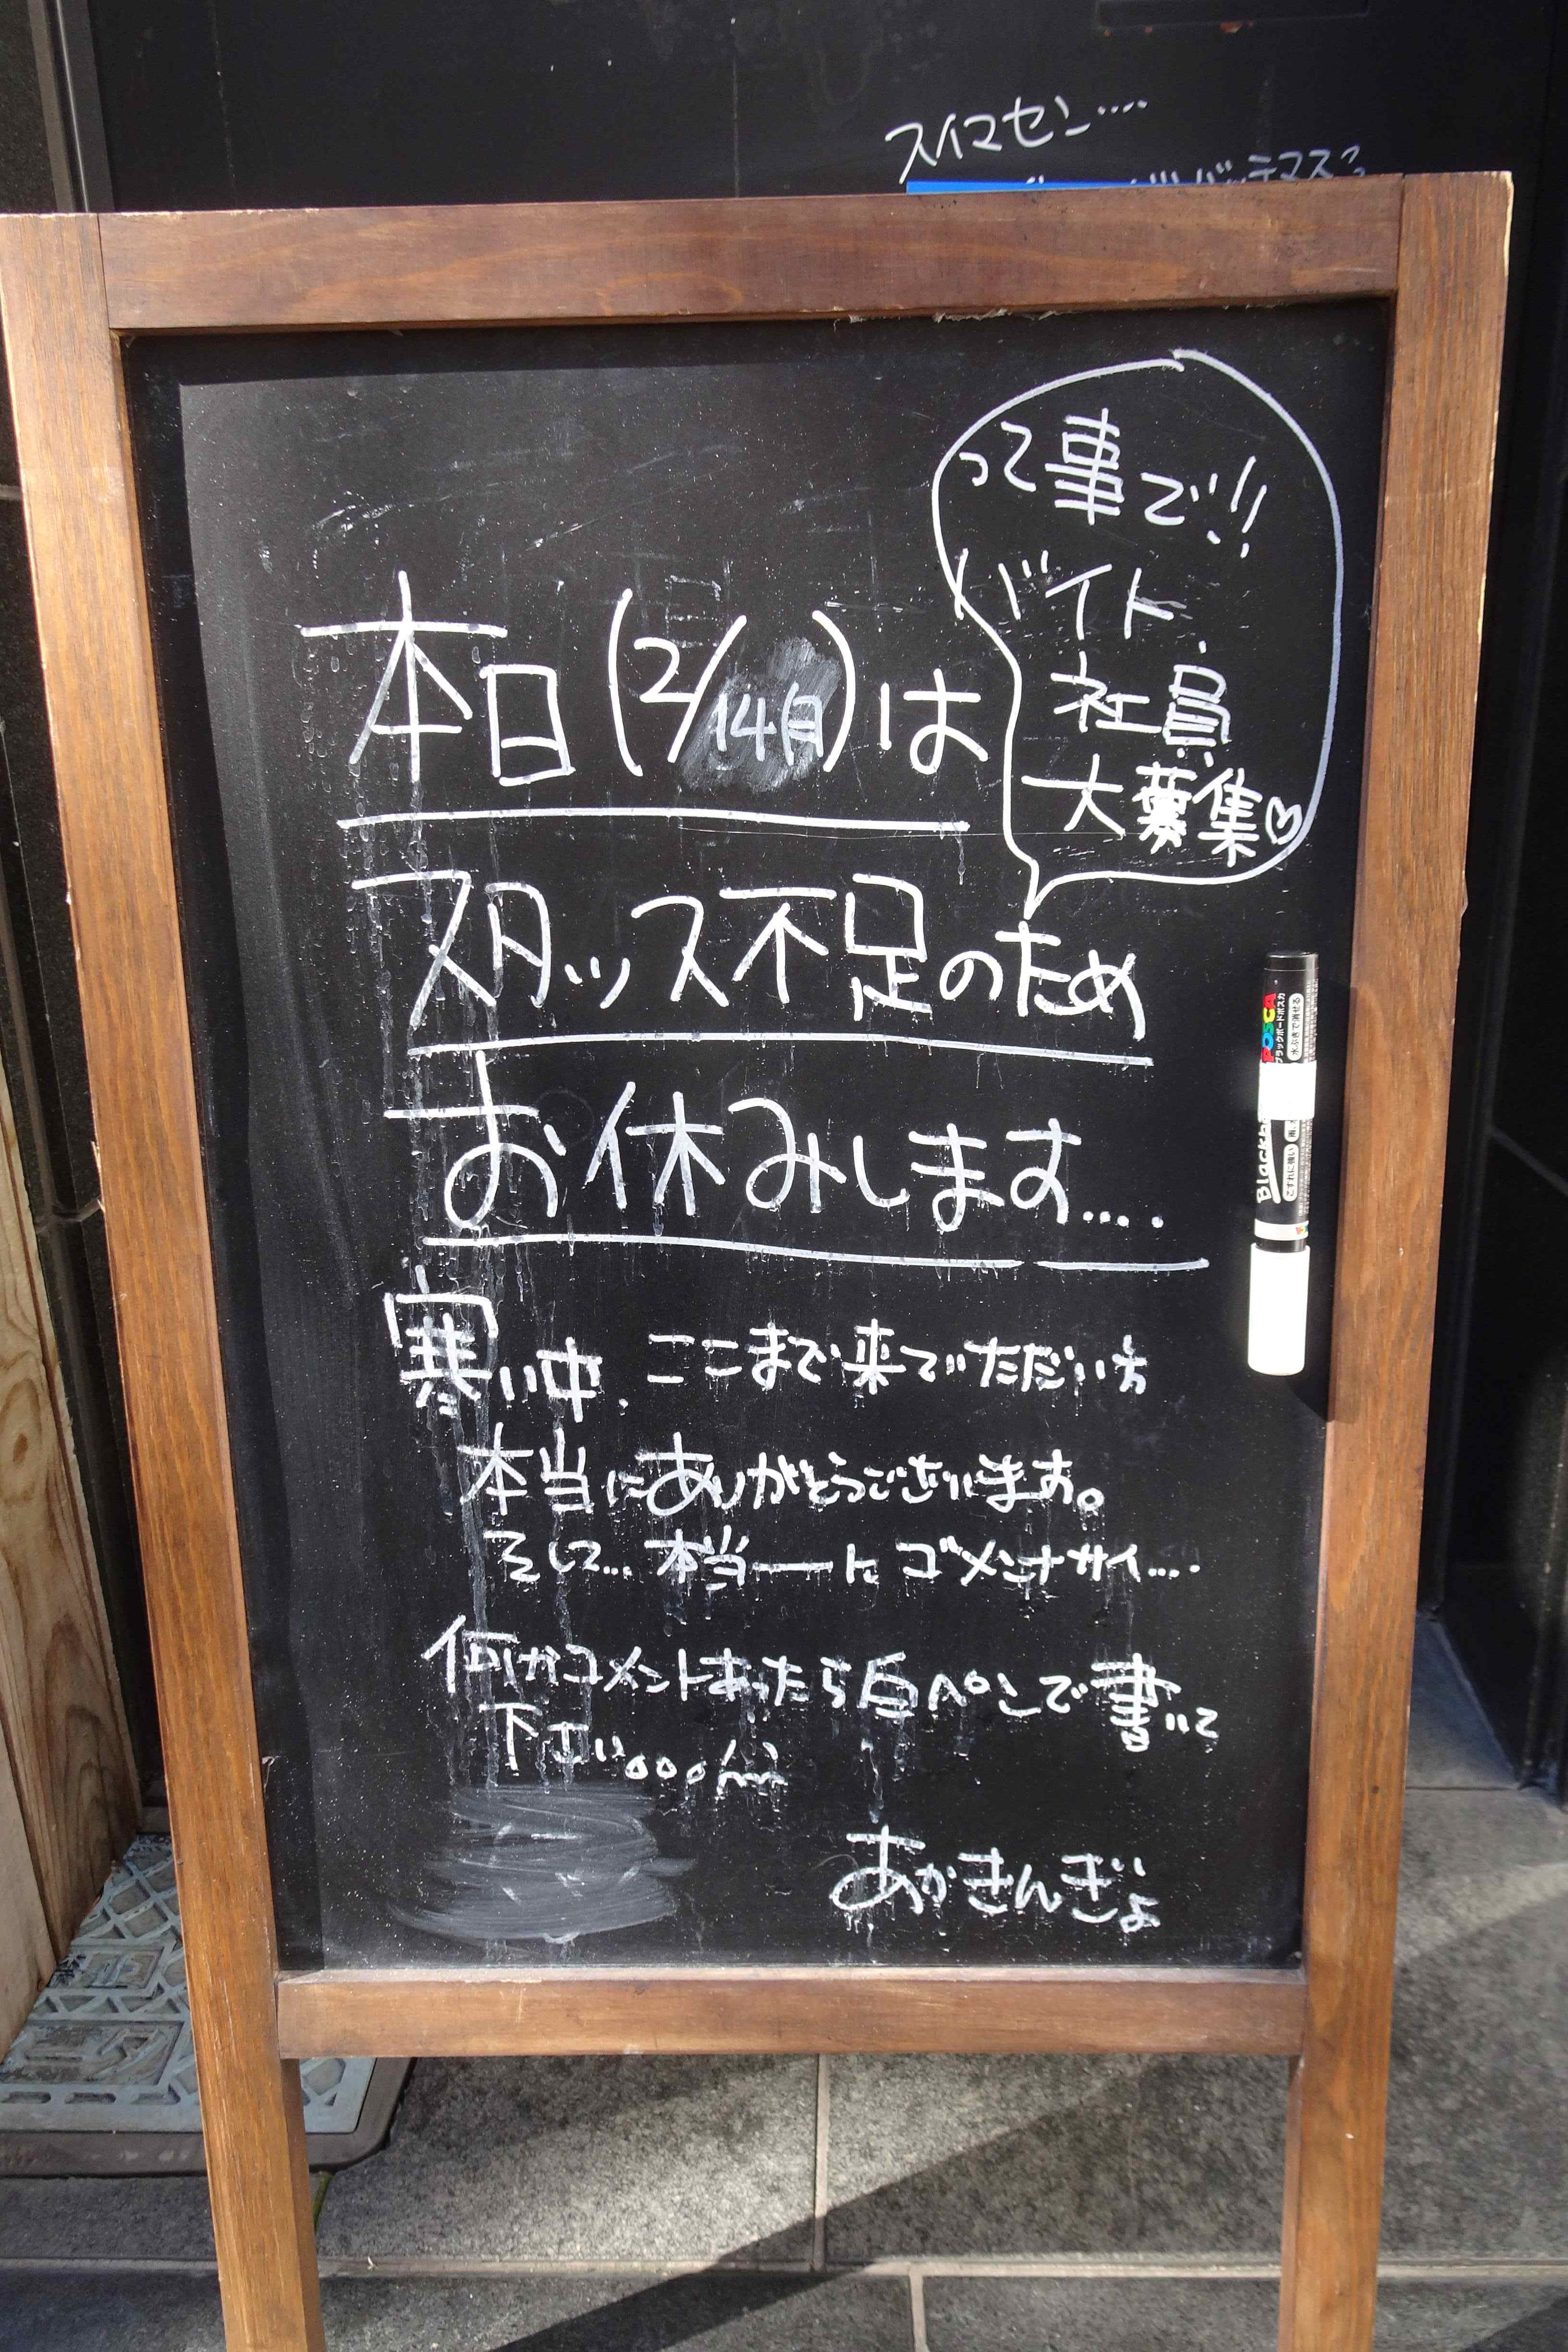 スイマセン….
って事で!!
バイト
社員
大募集♡
本日(2/14月)は
スタッス不足のため
お休みします….
寒い中、ここまで来ていただい方
本当にありがとうございます。
そして…本当ーにゴメンナサイ….
何かコメントあったら白ペンで書いて
下さい。。。m
あかきんぎょ
POSCA
ブラックボードポスカ
水ぶきで消せる